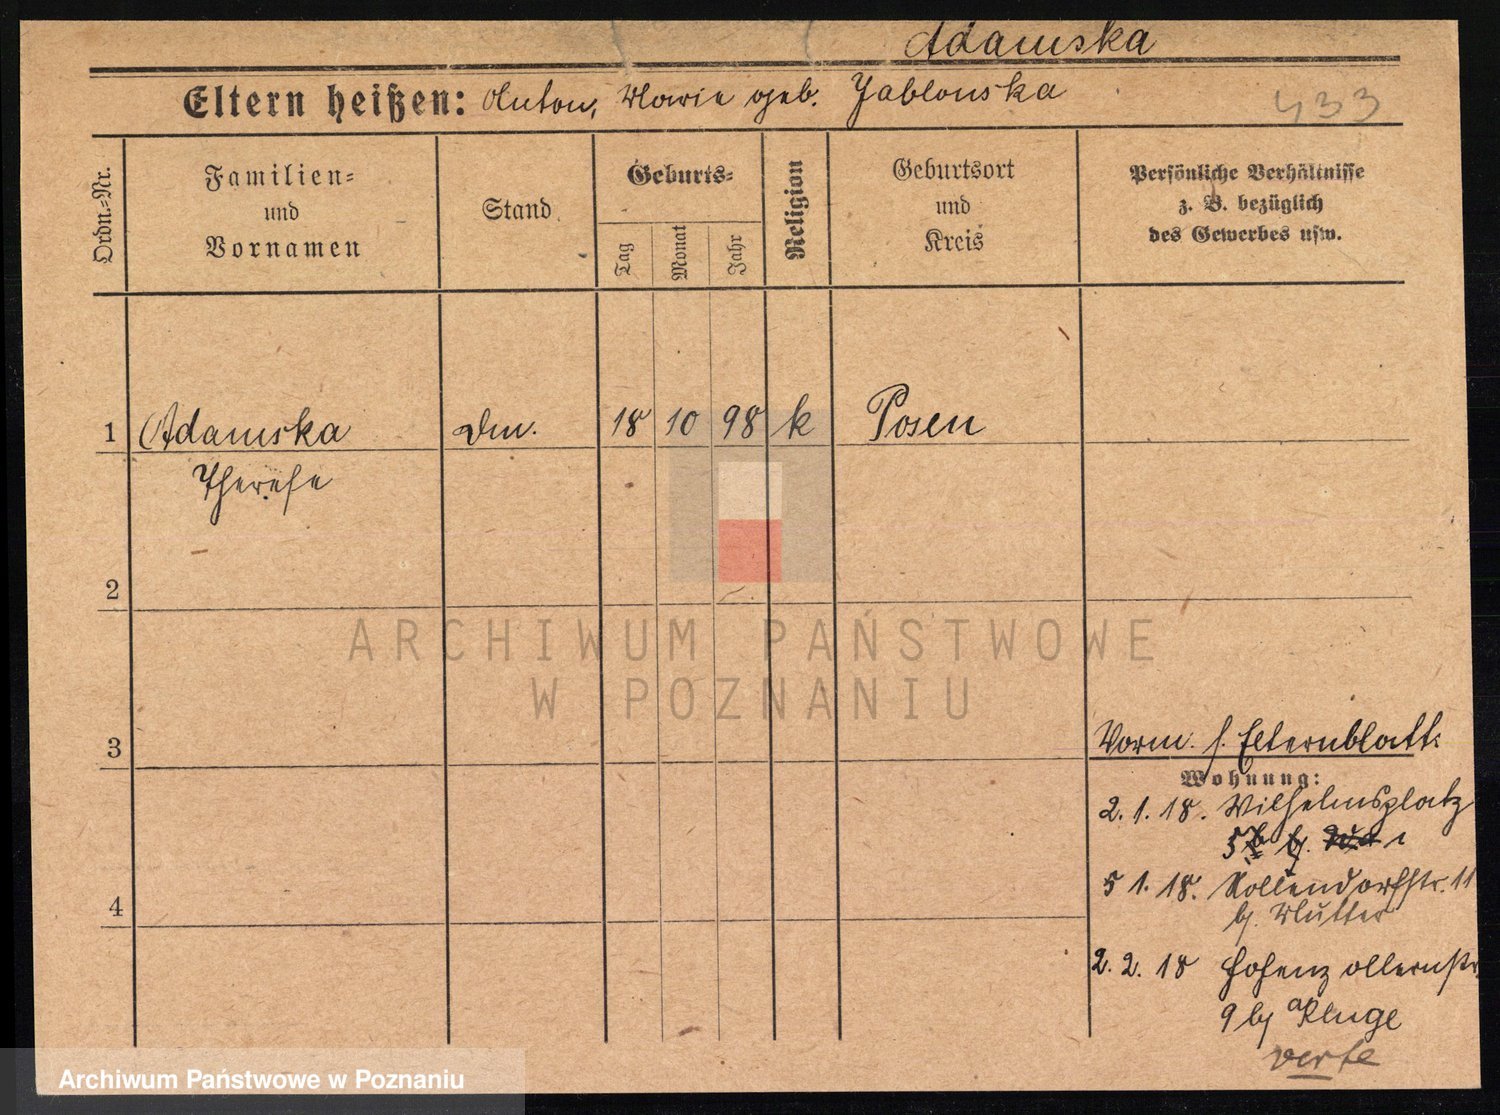 Adamska
Eltern heißen: Anton, Marie geb. Jablonska
433
Ordn.-Nr.
Familien-
und
Vornamen
Stand
Geburts-
Tag
Monat
Jahr
Religion
Geburtsort
und
Kreis
Persönliche Verhältnisse
z. B. bezüglich
des Gewerbes usw.
1 Adamska Dm. 18 10 98 k Posen
Therese
2
3
Vorm. s. Elternblatt.
Wohnung:
2. 1. 18. Wilhelmsplatz
5 1. 18. Kollendorfstr. 11
4
bj. Mutter
2. 2. 18 Hohenzollernstr.
9 bj Kluge
verte
ARCHIWUM PAŃSTWOWE
W POZNANIU
Archiwum Państwowe w Poznaniu